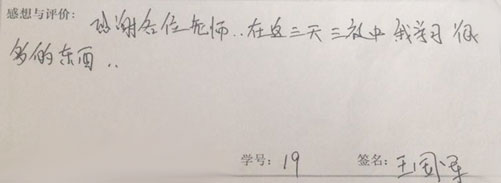 感想与评价:
感谢各位老师..在这三天三夜中我学习很
多的东西..
学号: 19 签名: 王国泽